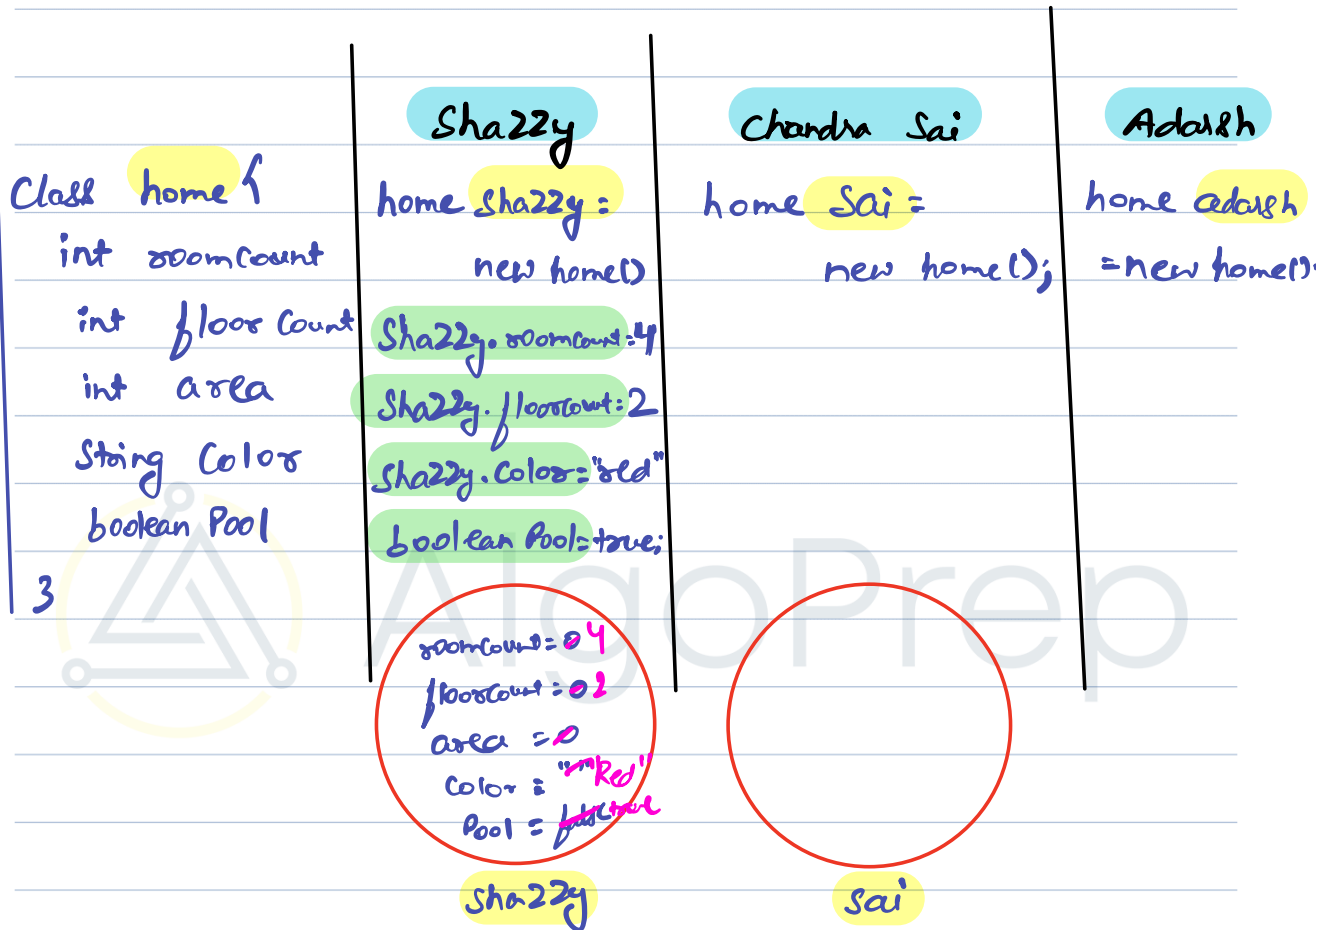 Class home {
int roomCount
int floorCount
int area
String Color
boolean Pool
}
Shazzy
home Shazzy =
new home()
Shazzy.roomcount=4
Shazzy.floorcount=2
Shazzy.Color="red"
boolean Pool=true;
roomcount=0 4
floorCount=0 2
area = 0
Color = "" "Red"
Pool = false true
Shazzy
Chandra Sai
home Sai =
new home();
Sai
Adarsh
home adarsh
=new home()
AlgoPrep